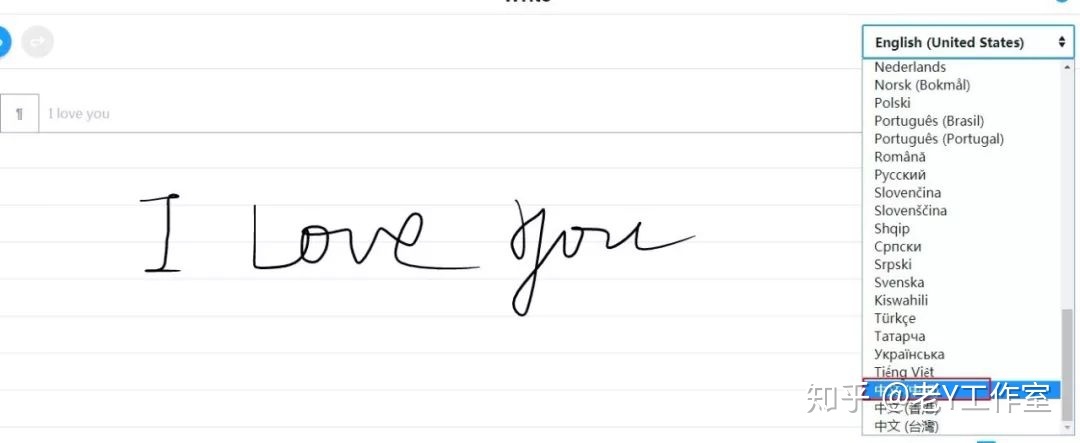 English (United States)
Nederlands
¶ I love you
Norsk (Bokmål)
Polski
Português (Brasil)
Português (Portugal)
Română
Русский
I Love you
Slovenčina
Slovenščina
Shqip
Српски
Srpski
Svenska
Kiswahili
Türkçe
Татарча
Українська
Tiếng Việt
中文
知乎 @老Y工作室
中文 (香港)
中文 (台灣)